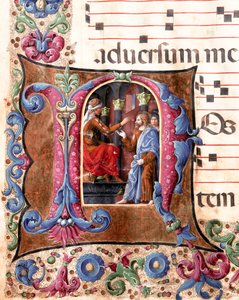 aduersum me
N
Os
tem